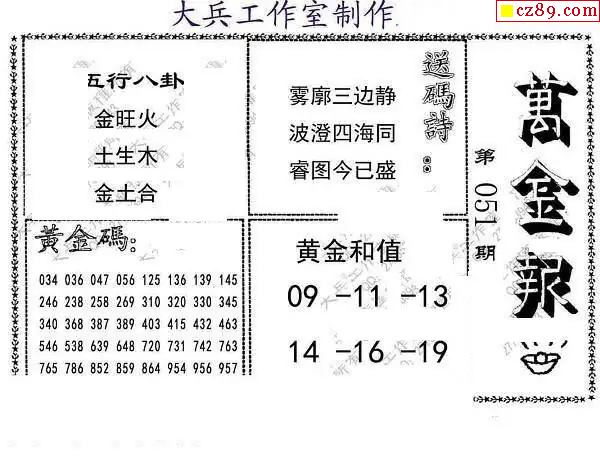 大兵工作室制作
cz89.com
五行八卦
金旺火
土生木
金土合
送碼詩：
雾廓三边静
波澄四海同
睿图今已盛
萬金報
第051期
黃金碼：
034 036 047 056 125 136 139 145
246 238 258 269 310 320 330 345
340 368 387 389 403 415 432 463
546 538 639 648 720 731 742 763
765 786 852 859 864 954 956 957
黄金和值
09 -11 -13
14 -16 -19